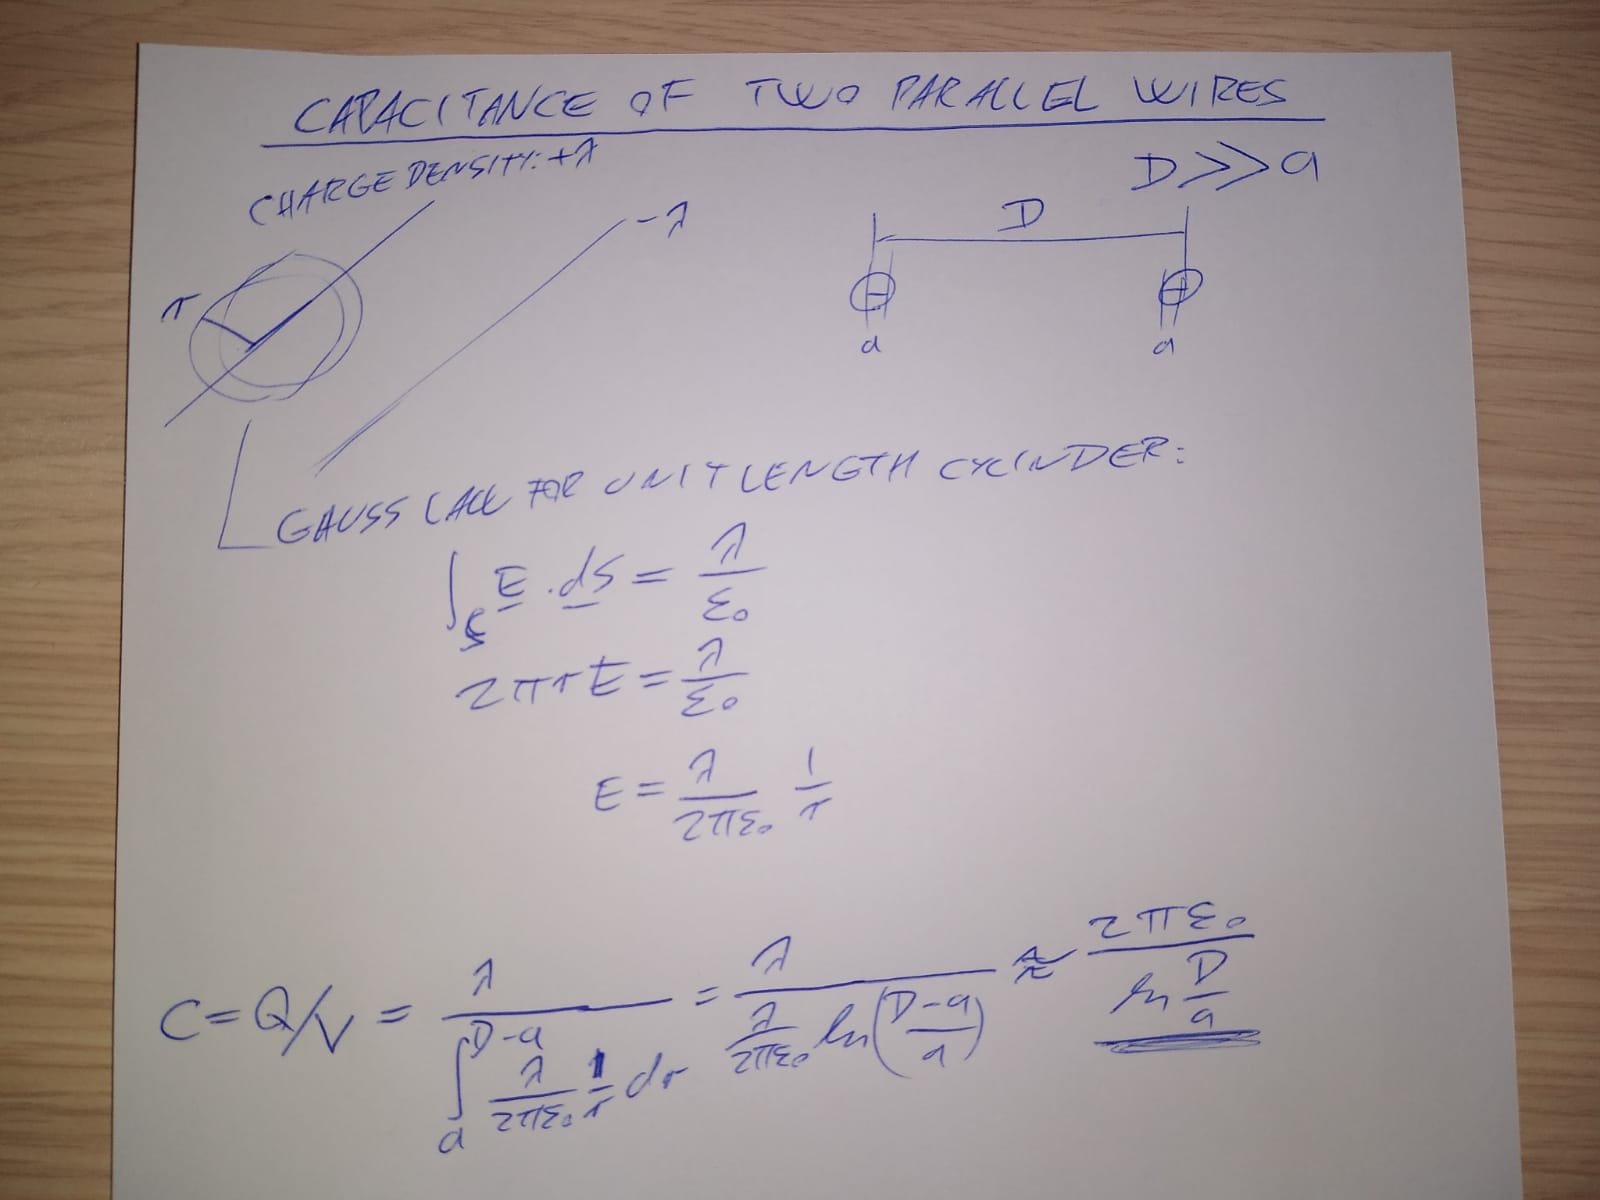 CAPACITANCE OF TWO PARALLEL WIRES
CHARGE DENSITY: +λ
-λ
r
D>>a
D
a a
GAUSS LAW FOR UNIT LENGTH CYLINDER:
∫_S E · dS = λ/ε₀
2πrE = λ/ε₀
E = λ/2πε₀ 1/r
C = Q/V = λ / ∫_a^{D-a} λ/2πε₀ 1/r dr = λ / (λ/2πε₀ ln((D-a)/a)) ≈ 2πε₀ / ln D/a